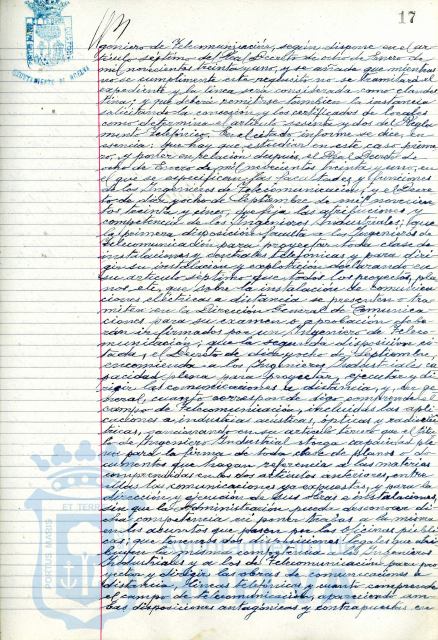 17
AYUNTAMIENTO DE MALAGA
Ingeniero de Telecomunicación, según dispone en el ar-
tículo séptimo del Real Decreto de ocho de Enero de
mil novecientos treinta y uno, y se añade que mientras
no se cumplimente este requisito no se tramitará el
expediente y la línea será considerada como clandes-
tina; y que deberá remitirse también la instancia
solicitando la concesión y los certificados de locales
como determina el artículo sesenta y dos del Regla-
mento telefónico. En el citado informe se dice, en
esencia: Que hay que estudiar en este caso prime-
ro, y poner en relación después, el Real Decreto de
ocho de Enero de mil novecientos treinta y uno, en
el que se especifican las facultades y funciones
de los Ingenieros de Telecomunicación, y el Decre-
to de diez y ocho de Septiembre de mil novecien-
tos treinta y cinco, que fija las atribuciones y
competencia de los Ingenieros Industriales; que
la primera disposición faculta a los Ingenieros de
Telecomunicación para proyectar toda clase de
instalaciones y derechos telefónicas y para diri-
gir su instalación y explotación declarando en
su artículo séptimo que todos los proyectos, pla-
nos, etc., que sobre la instalación de comunica-
ciones eléctricas a distancia se presenten o tra-
miten en la Dirección General de Comunica-
ciones para su examen y aprobación debe-
rán ir firmados por un Ingeniero de Telec-
omunicación; que la segunda disposición ci-
tada, el Decreto de diez y ocho de Septiembre,
encomienda a los Ingenieros Industriales ca-
pacidad plena para proyectar, ejecutar y di-
rigir las comunicaciones a distancia, y, en ge-
neral, cuanto corresponde sigo comprende el
campo de Telecomunicación, incluidas las apli-
caciones a industrias acústicas, ópticas y radioeléc-
tricas, sancionando en su artículo tercero que el títu-
lo de Ingeniero Industrial otorga capacidad ple-
na para la firma de toda clase de planos o do-
cumentos que hagan referencia a las materias
comprendidas en los dos artículos anteriores, entre
ellas las comunicaciones ya expuestas, y para la
dirección y ejecución de sus obras e instalaciones,
sin que la Administración pueda desconocer di-
cha competencia ni poner trabas a la misma
en los asuntos que pasen por las oficinas públi-
cas; que tenemos dos disposiciones legales que atri-
buyen la misma competencia a los Ingenieros
Industriales y a los de Telecomunicación para pro-
yectar y dirigir las obras de comunicaciones a
distancia, líneas telefónicas y cuanto comprende
el campo de telecomunicación, apareciendo am-
bas disposiciones antagónicas y contrapuestas en